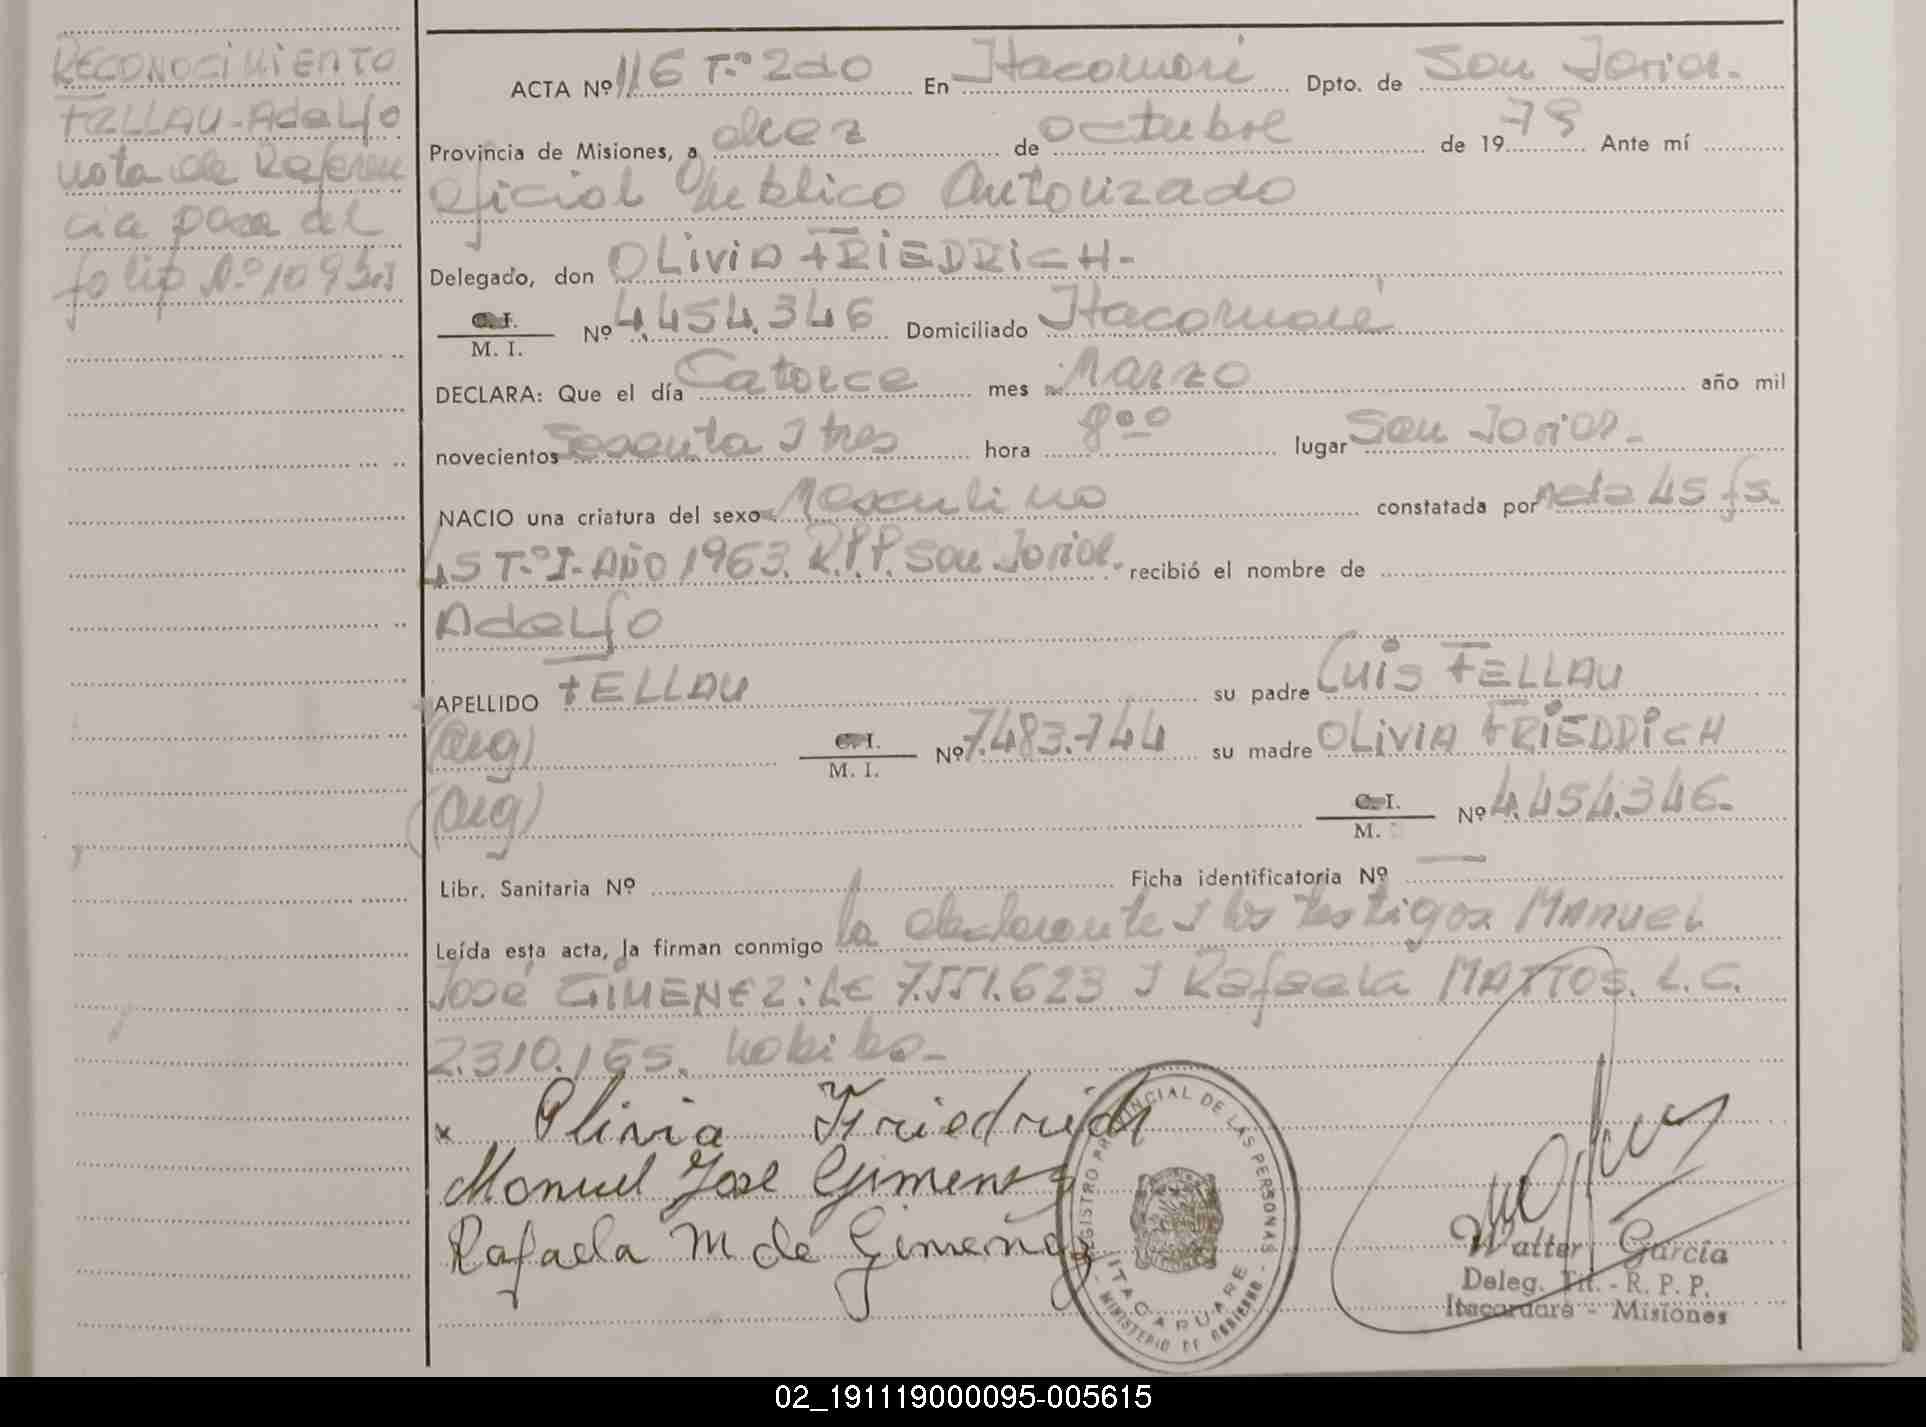 RECONOCIMIENTO
FELLAU-Adolfo
nota de Referen
cia pasa al
folio Nº 109
ACTA Nº 116 T.º 2do En Itacaruaré Dpto. de San Javier.-
Provincia de Misiones, a diez de octubre de 1979 Ante mí
Oficial Público Autorizado
Delegado, don OLIVIA FRIEDRICH.-
C. I.
M. I. Nº 4.454.346 Domiciliado Itacaruaré
DECLARA: Que el día Catorce mes Marzo año mil
novecientos sesenta y tres hora 8ºº lugar San Javier.-
NACIO una criatura del sexo Masculino constatada por Acta 45 fs.
45 T.º I- AÑO 1963. R.P.P. San Javier. recibió el nombre de
Adolfo
APELLIDO FELLAU su padre Luis FELLAU
(Arg) C. I.
M. I. Nº 7.483.744 su madre OLIVIA FRIEDRICH
(Arg) C. I.
M. Nº 4.454.346.-
Libr. Sanitaria Nº Ficha identificatoria Nº —
Leída esta acta, la firman conmigo la declarante y los testigos MANUEL
José GIMENEZ: LE 7.551.623 y Rafaela MATTOS. L.C.
2.310.165.
x Olivia Friedrich
Manuel José Gimenez
Rafaela M de Gimenez
REGISTRO PROVINCIAL DE LAS PERSONAS
ITACARUARE
- MINISTERIO DE GOBIERNO -
Walter García
Deleg. Tit. - R. P. P.
Itacaruaré - Misiones
02_191119000095-005615